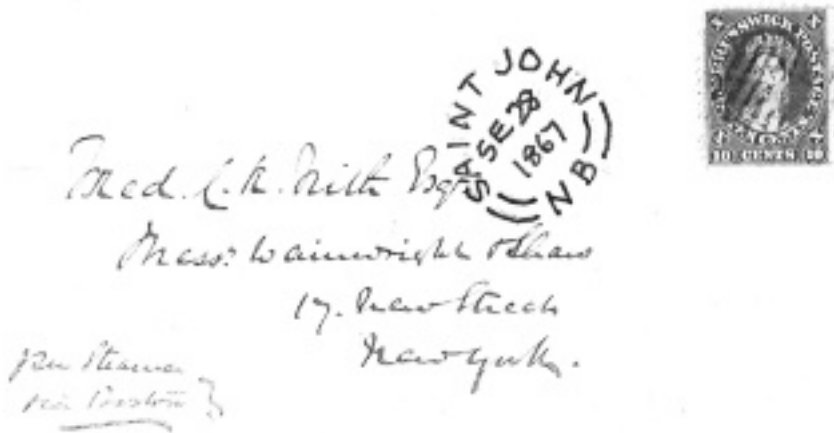 NEW BRUNSWICK POSTAGE
10 CENTS 10
SAINT JOHN
SE 28
1867
NB
Fred. C. A. Esq
Messrs Wainwright & Shaw
17. New Street
New York.
Per Steamer
via Boston